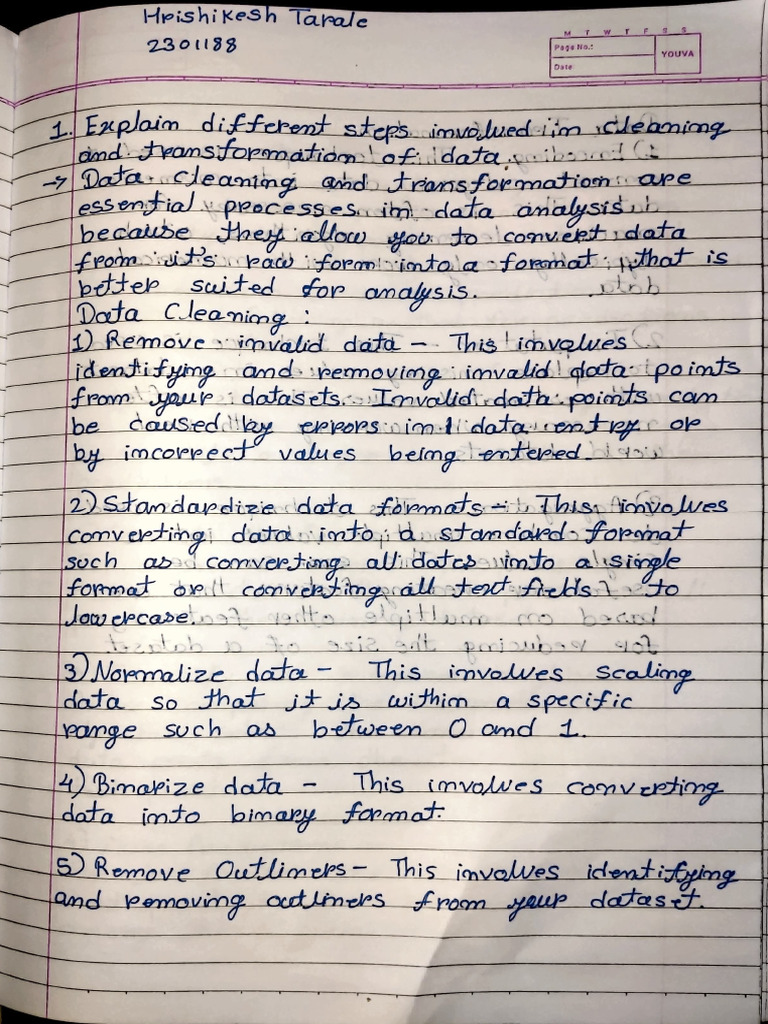 Hrishikesh Tarale
2301188
M T W T F S S
Page No.:
Date:
YOUVA
1. Explain different steps involved in cleaning
and transformation of data.
→ Data cleaning and transformation are
essential processes in data analysis
because they allow you to convert data
from it's raw form into a format that is
better suited for analysis.
Data Cleaning :
1) Remove invalid data - This involves
identifying and removing invalid data points
from your datasets. Invalid data points can
be caused by errors in data entry or
by incorrect values being entered.
2) Standardize data formats - This involves
converting data into a standard format
such as converting all dates into a single
format or converting all text fields to
lowercase.
3) Normalize data - This involves scaling
data so that it is within a specific
range such as between 0 and 1.
4) Binarize data - This involves converting
data into binary format.
5) Remove Outliners - This involves identifying
and removing outliners from your dataset.